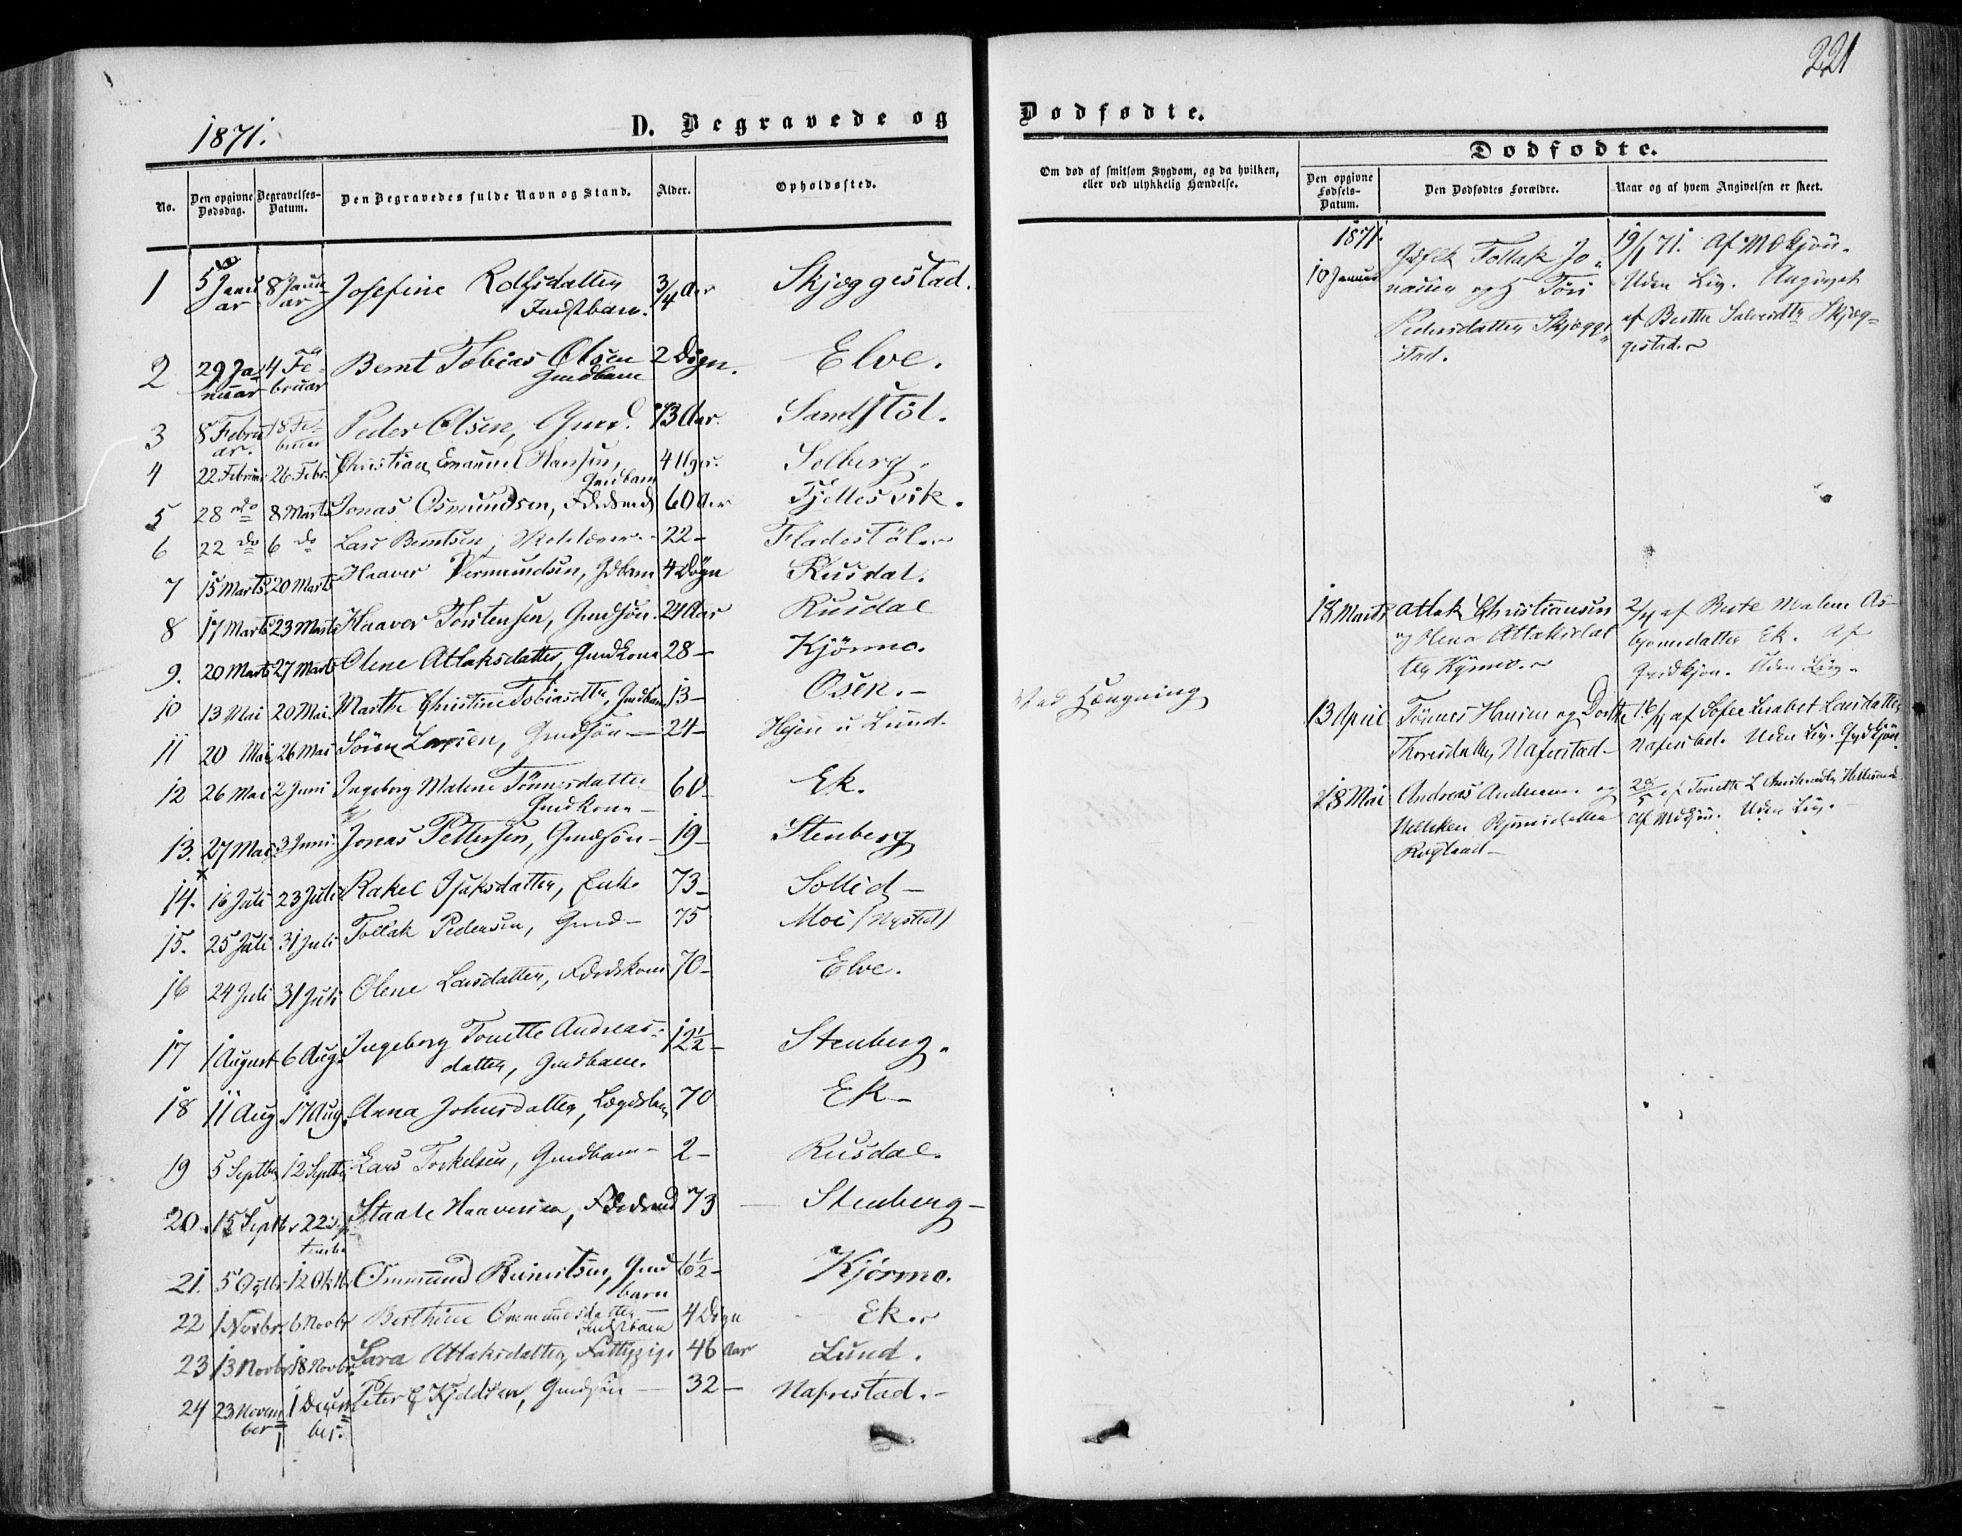 221
1871.
D. Begravede og Dødfødte.
No.
Den opgivne Dødsdag.
Begravelses-Datum.
Den Begravedes fulde Navn og Stand.
Alder.
Opholdssted.
Om død af smitsom Sygdom, og da hvilken, eller ved ulykkelig Hændelse.
Dødfødte.
Den opgivne Fødsels-Datum.
Den Dødfødtes Forældre.
Naar og af hvem Angivelsen er skeet.
1 5 Januar 8 Januar Josefine 3/4 Aar Skjæggestad.
2 29 Januar 4 Februar Bernt Tobias Olsen Gmdbarn 2 Døgn. Elve.
3 8 Februar. 18 Februar Peder Olsen, Gmd. 73 Aar. Sandstöl.
4 22 Februar 26 Febr. Christian Emanuel Hansen, Gmdbarn 4 Uger. Solberg.
5 28 do 8 Marts Jonas Osmundsen, 60 Aar Fjellesvik.
6 22 do 6 do Lars Berntsen, 22 - Fladestöl
7 15 Marts 20 Marts Haaver Vermundsen, Gdbarn 4 Døgn Rusdal.
8 17 Marts 23 Marts Haaver Torstensen, Gmdsøn. 24 Aar Rusdal
9. 20 Marts 27 Marts Olene Atlaksdatter, Gmdkone 28 - Kjörmo.
10 13 Mai 20 Mai. Marthe Christine Tobiasdtr, Gmdbarn 13 - Osen. - Ved Hængning
11 20 Mai 26 Mai Sören Larsen, Gmdsøn - 24 - Lund.
12 26 Mai 2 Juni Ingeborg Malene Tönnesdatter Gmdkone - 60 Ek.
13. 27 Mai 3 Juni Jonas Pettersen, Gmdsøn - 19 - Stenberg
14. 16 Juli 23 Juli Rakel datter, Enke 73 - Sollid -
15. 25 Juli 31 Juli Tollak Pedersen, Gmd - 75 Moi (Nysted)
16 24 Juli 31 Juli Olene Larsdatter, Føderaadskone 70 - Elve.
17 1 August 6 Aug. Ingeborg Tonette Andreas-
datter, Gmdbarn. 12 1/2 - Stenberg.
18 11 Aug. 17 Aug. Anna Johnsdatter, 70 Ek -
19 5 Septbr 12 Septbr Lars Torkelsen, Gmdbarn - 2 - Rusdal.
20 15 Septbr 22 September Staale Haaversen, 73 - Stenberg -
21. 5 Oktbr 12 Oktbr Ommund Gmd
barn 6 1/2 - Kjörmo.
22 1 Novbr. 6 Novbr Berthine Ommundsdatter 4 Døgn Ek
23 13 Novbr 18 Novbr. Sara Atlaksdatter, Fattig 46 Aar Lund.
24 23 November 1 December. Peter Gmdsøn - 32 - Nafrestad. -
1871.
10 Januar Tollak Jo-
nassen og H Töri
Pedersdatter Skjægge-
stad.
19/1 71. Af
Uden Liv. Angivet
af Berthe Skjæg-
gestad.
18 Marts Atlak Christiansen
og Olena Atlaksdat
ter Kjörmo.
2/4 af Berte Malene As-
bjørnsdatter Ek. Af
Qvidkjøn. Uden Liv.
13 April Tönnes Hansen og Dorthe
Thoresdatter, Nafrestad -
16/4 af Sofie Lisabet Larsdatter
Nafrestad. Uden Liv. Qvdkjön.
28 Mai Andreas Andersen og
28/5 af Tonette L
Af Mdkjön. Uden Liv. -